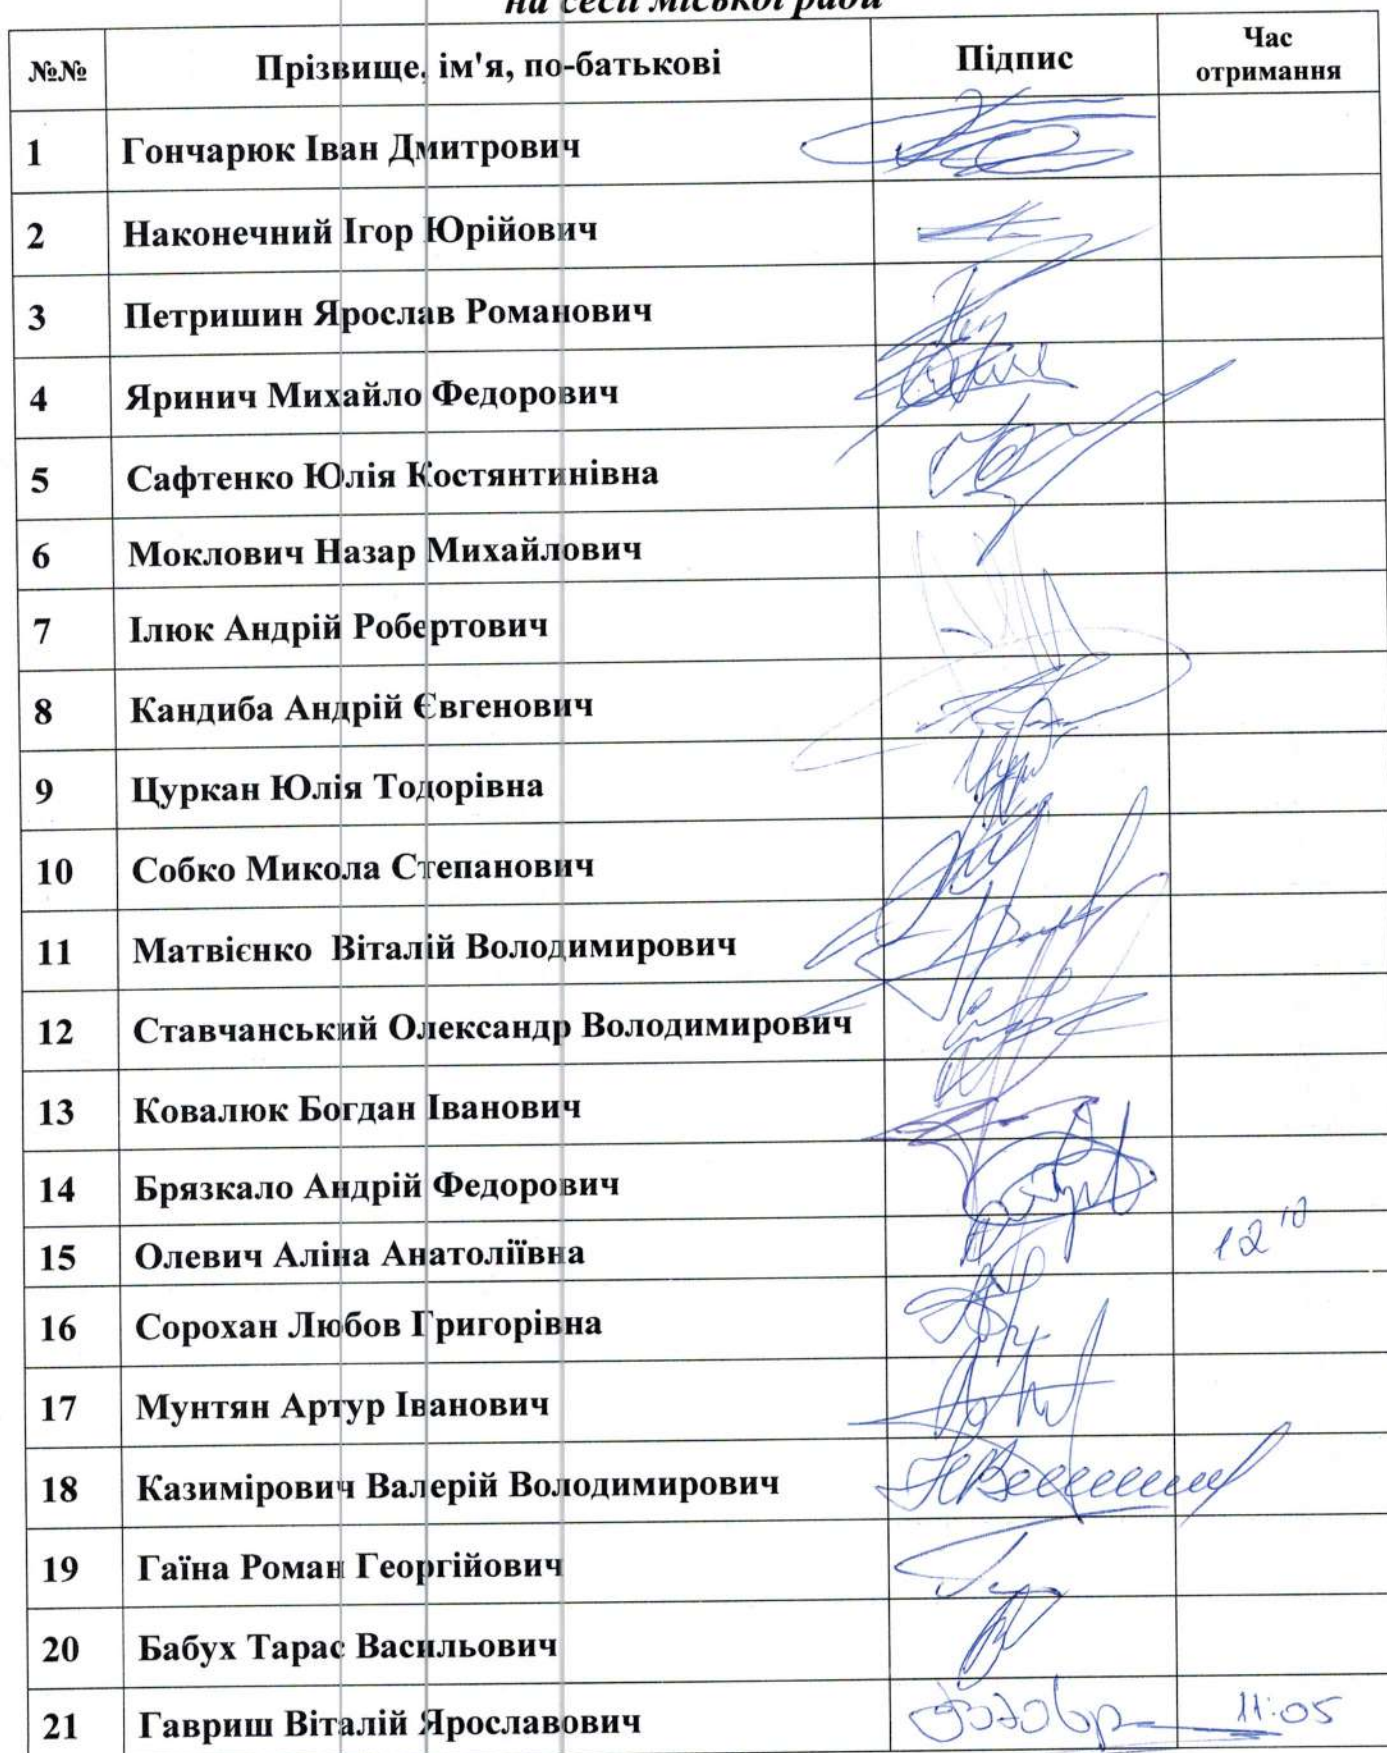 на сесії міської ради
№№ Прізвище, ім'я, по-батькові Підпис Час отримання
1 Гончарюк Іван Дмитрович
2 Наконечний Ігор Юрійович
3 Петришин Ярослав Романович
4 Яринич Михайло Федорович
5 Сафтенко Юлія Костянтинівна
6 Моклович Назар Михайлович
7 Ілюк Андрій Робертович
8 Кандиба Андрій Євгенович
9 Цуркан Юлія Тодорівна
10 Собко Микола Степанович
11 Матвієнко Віталій Володимирович
12 Ставчанський Олександр Володимирович
13 Ковалюк Богдан Іванович
14 Брязкало Андрій Федорович
15 Олевич Аліна Анатоліївна 12 10
16 Сорохан Любов Григорівна
17 Мунтян Артур Іванович
18 Казимірович Валерій Володимирович
19 Гаїна Роман Георгійович
20 Бабух Тарас Васильович
21 Гавриш Віталій Ярославович 11:05